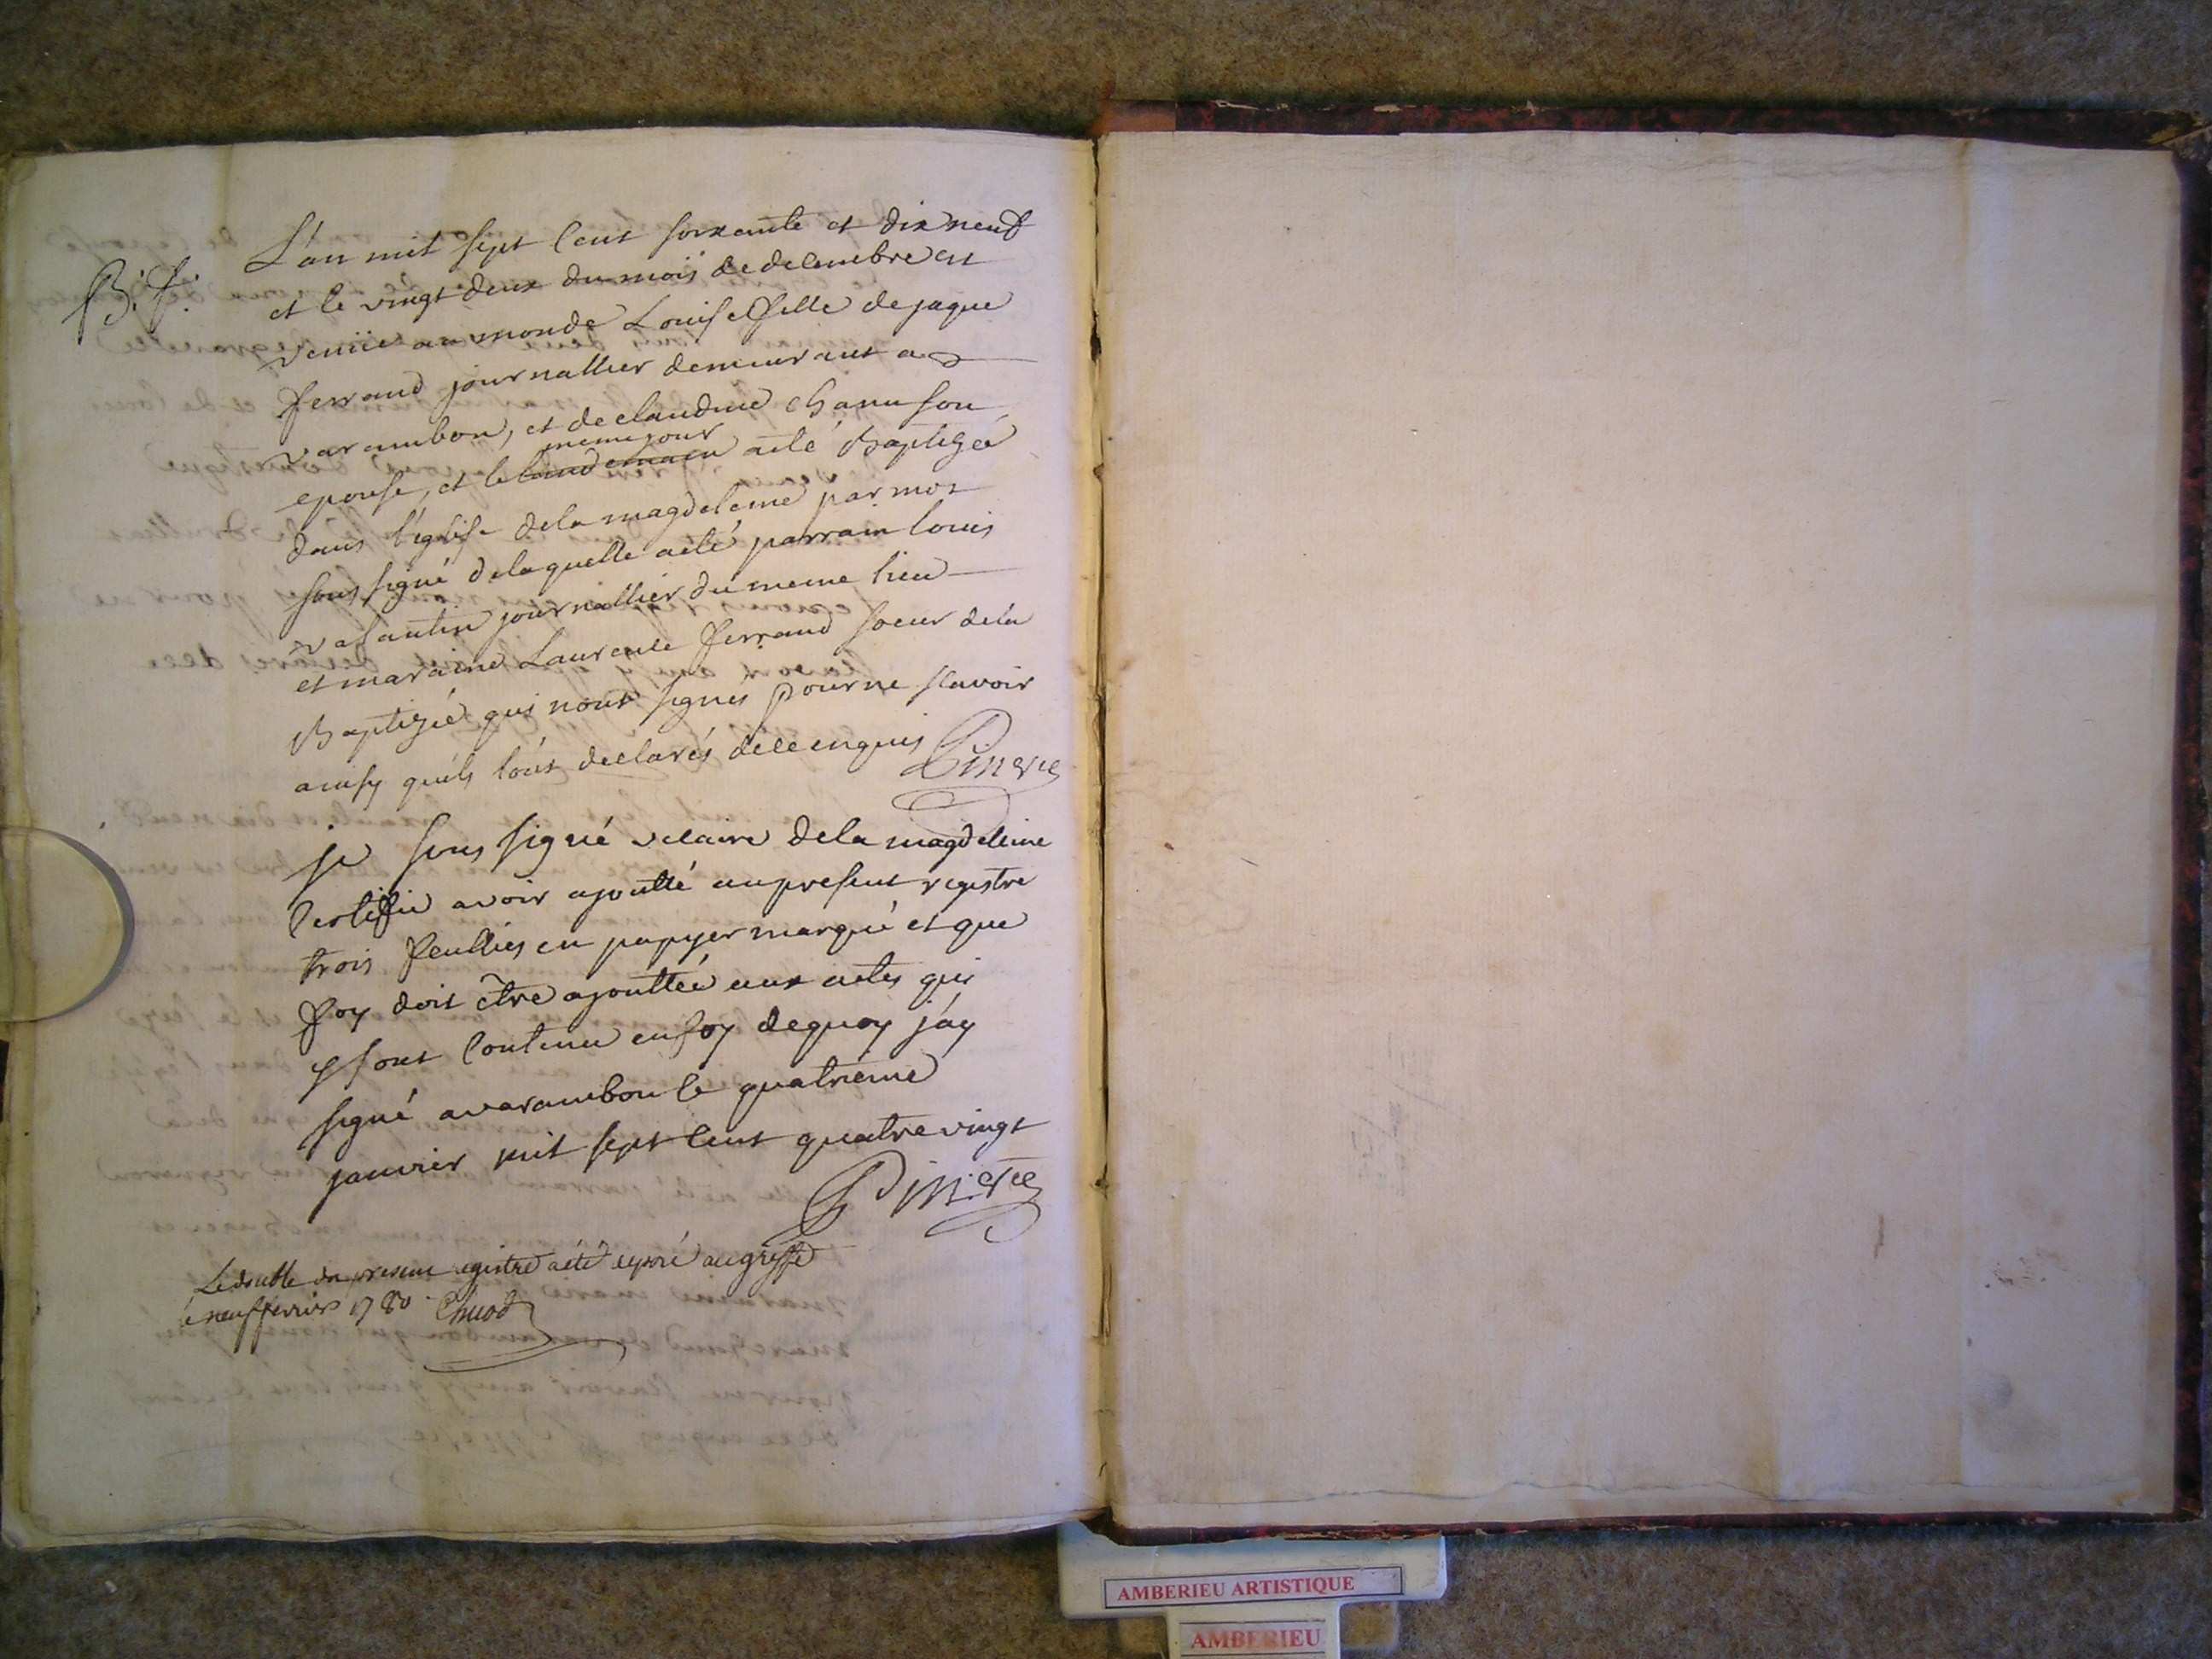 B. f.
L'an mil sept cent soixante et dix neuf
et le vingt deux du mois de decembre est
venüe au monde Louise fille de jaque
ferrand journallier demeurant a
varambon, et de claudine chanu son
meme jour
epouse, et le landemain a eté Baptizeé
dans l'église de la magdeleine par moi
soussigné de laquelle a eté parrain louis
valantin journallier du meme lieu
et maraine Laurence ferrand soeur de la
Baptizeé qui n'ont signés pour ne scavoir
ainsy qu'ils l'ont declarés de ce enquis
je sous signé vicaire de la magdeleine
Certifie avoir ajoutté au present registre
trois feullies en papyer marqué et que
foy doit être ajouttée aux actes qui
y sont contenu en foy de quoy j'ay
signé a varambon le quatrième
janvier mil sept cent quatre vingt
Le double du present registre a été deposé au greffe
le neuf fevrier 1780
AMBERIEU ARTISTIQUE
AMBERIEU